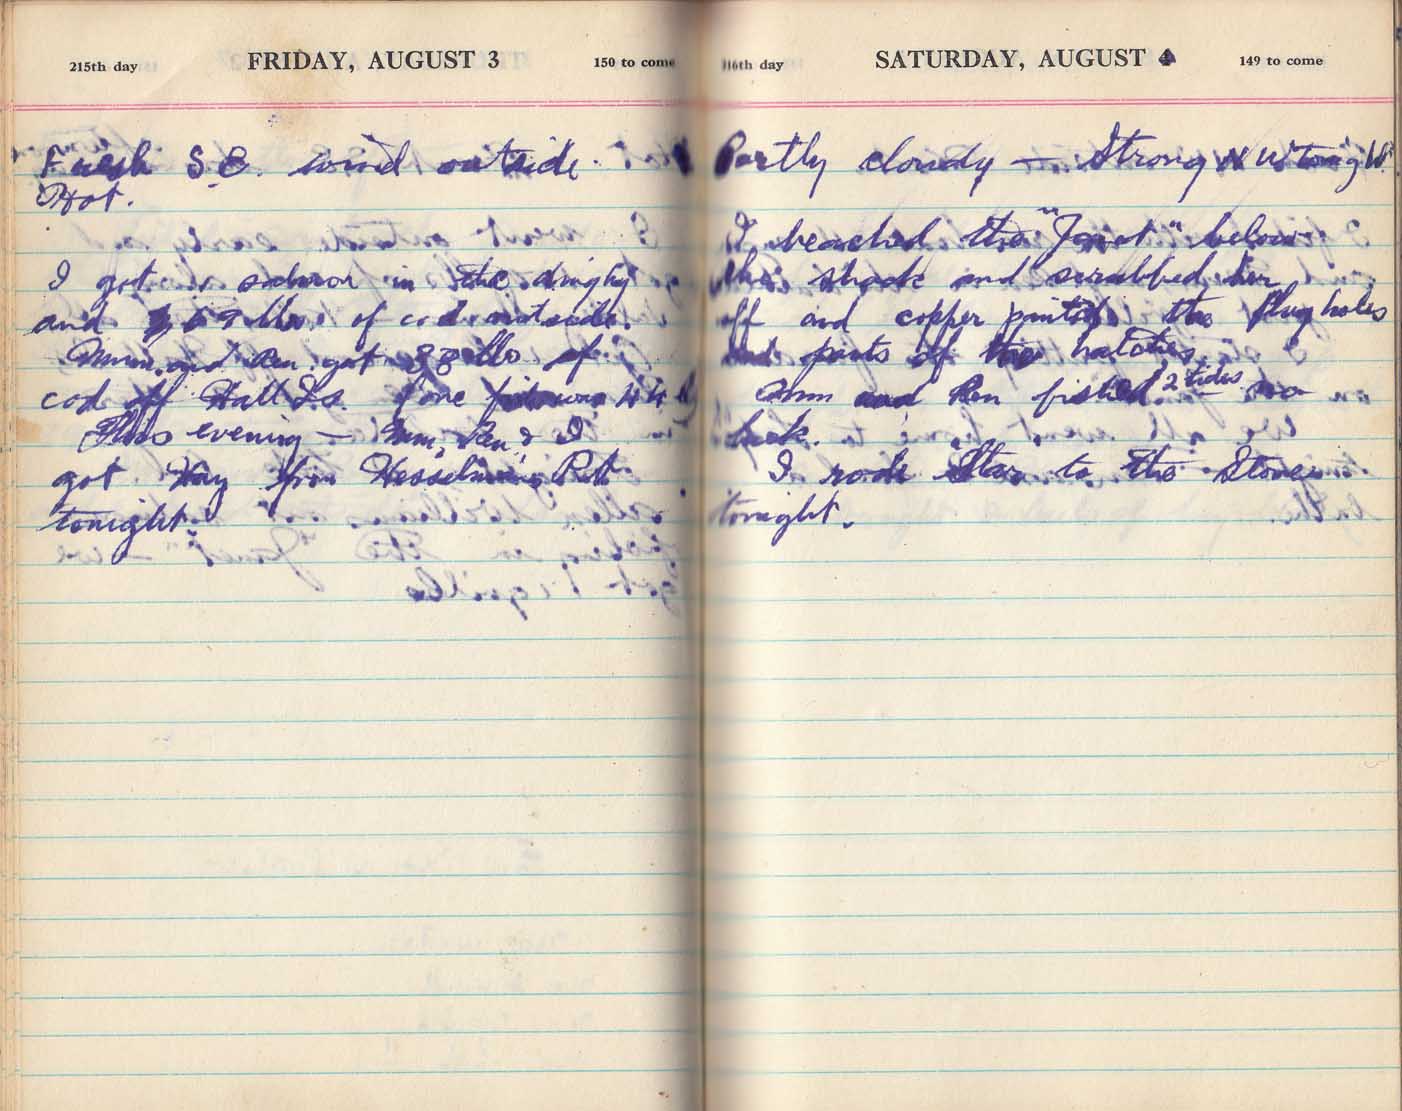 215th day FRIDAY, AUGUST 3 150 to come
Fresh S.E. wind outside.
Hot.
I got a salmon in the dinghy
and 69 lbs. of cod outside.
Mum. and Ren. got 38 lbs of
cod off Hall Is. (one was 44
This evening — Mum, Ren & I
got Hay from Hesselman's
tonight.
116th day SATURDAY, AUGUST 4 149 to come
Partly cloudy — Strong N W tonight.
I beached the "Janet" below
the shack and scrubbed her
off and copper painted the plug holes
and parts of the hatches.
Mum and Ren fished 2 tides no
luck.
I rode "Star" to the Store
tonight.